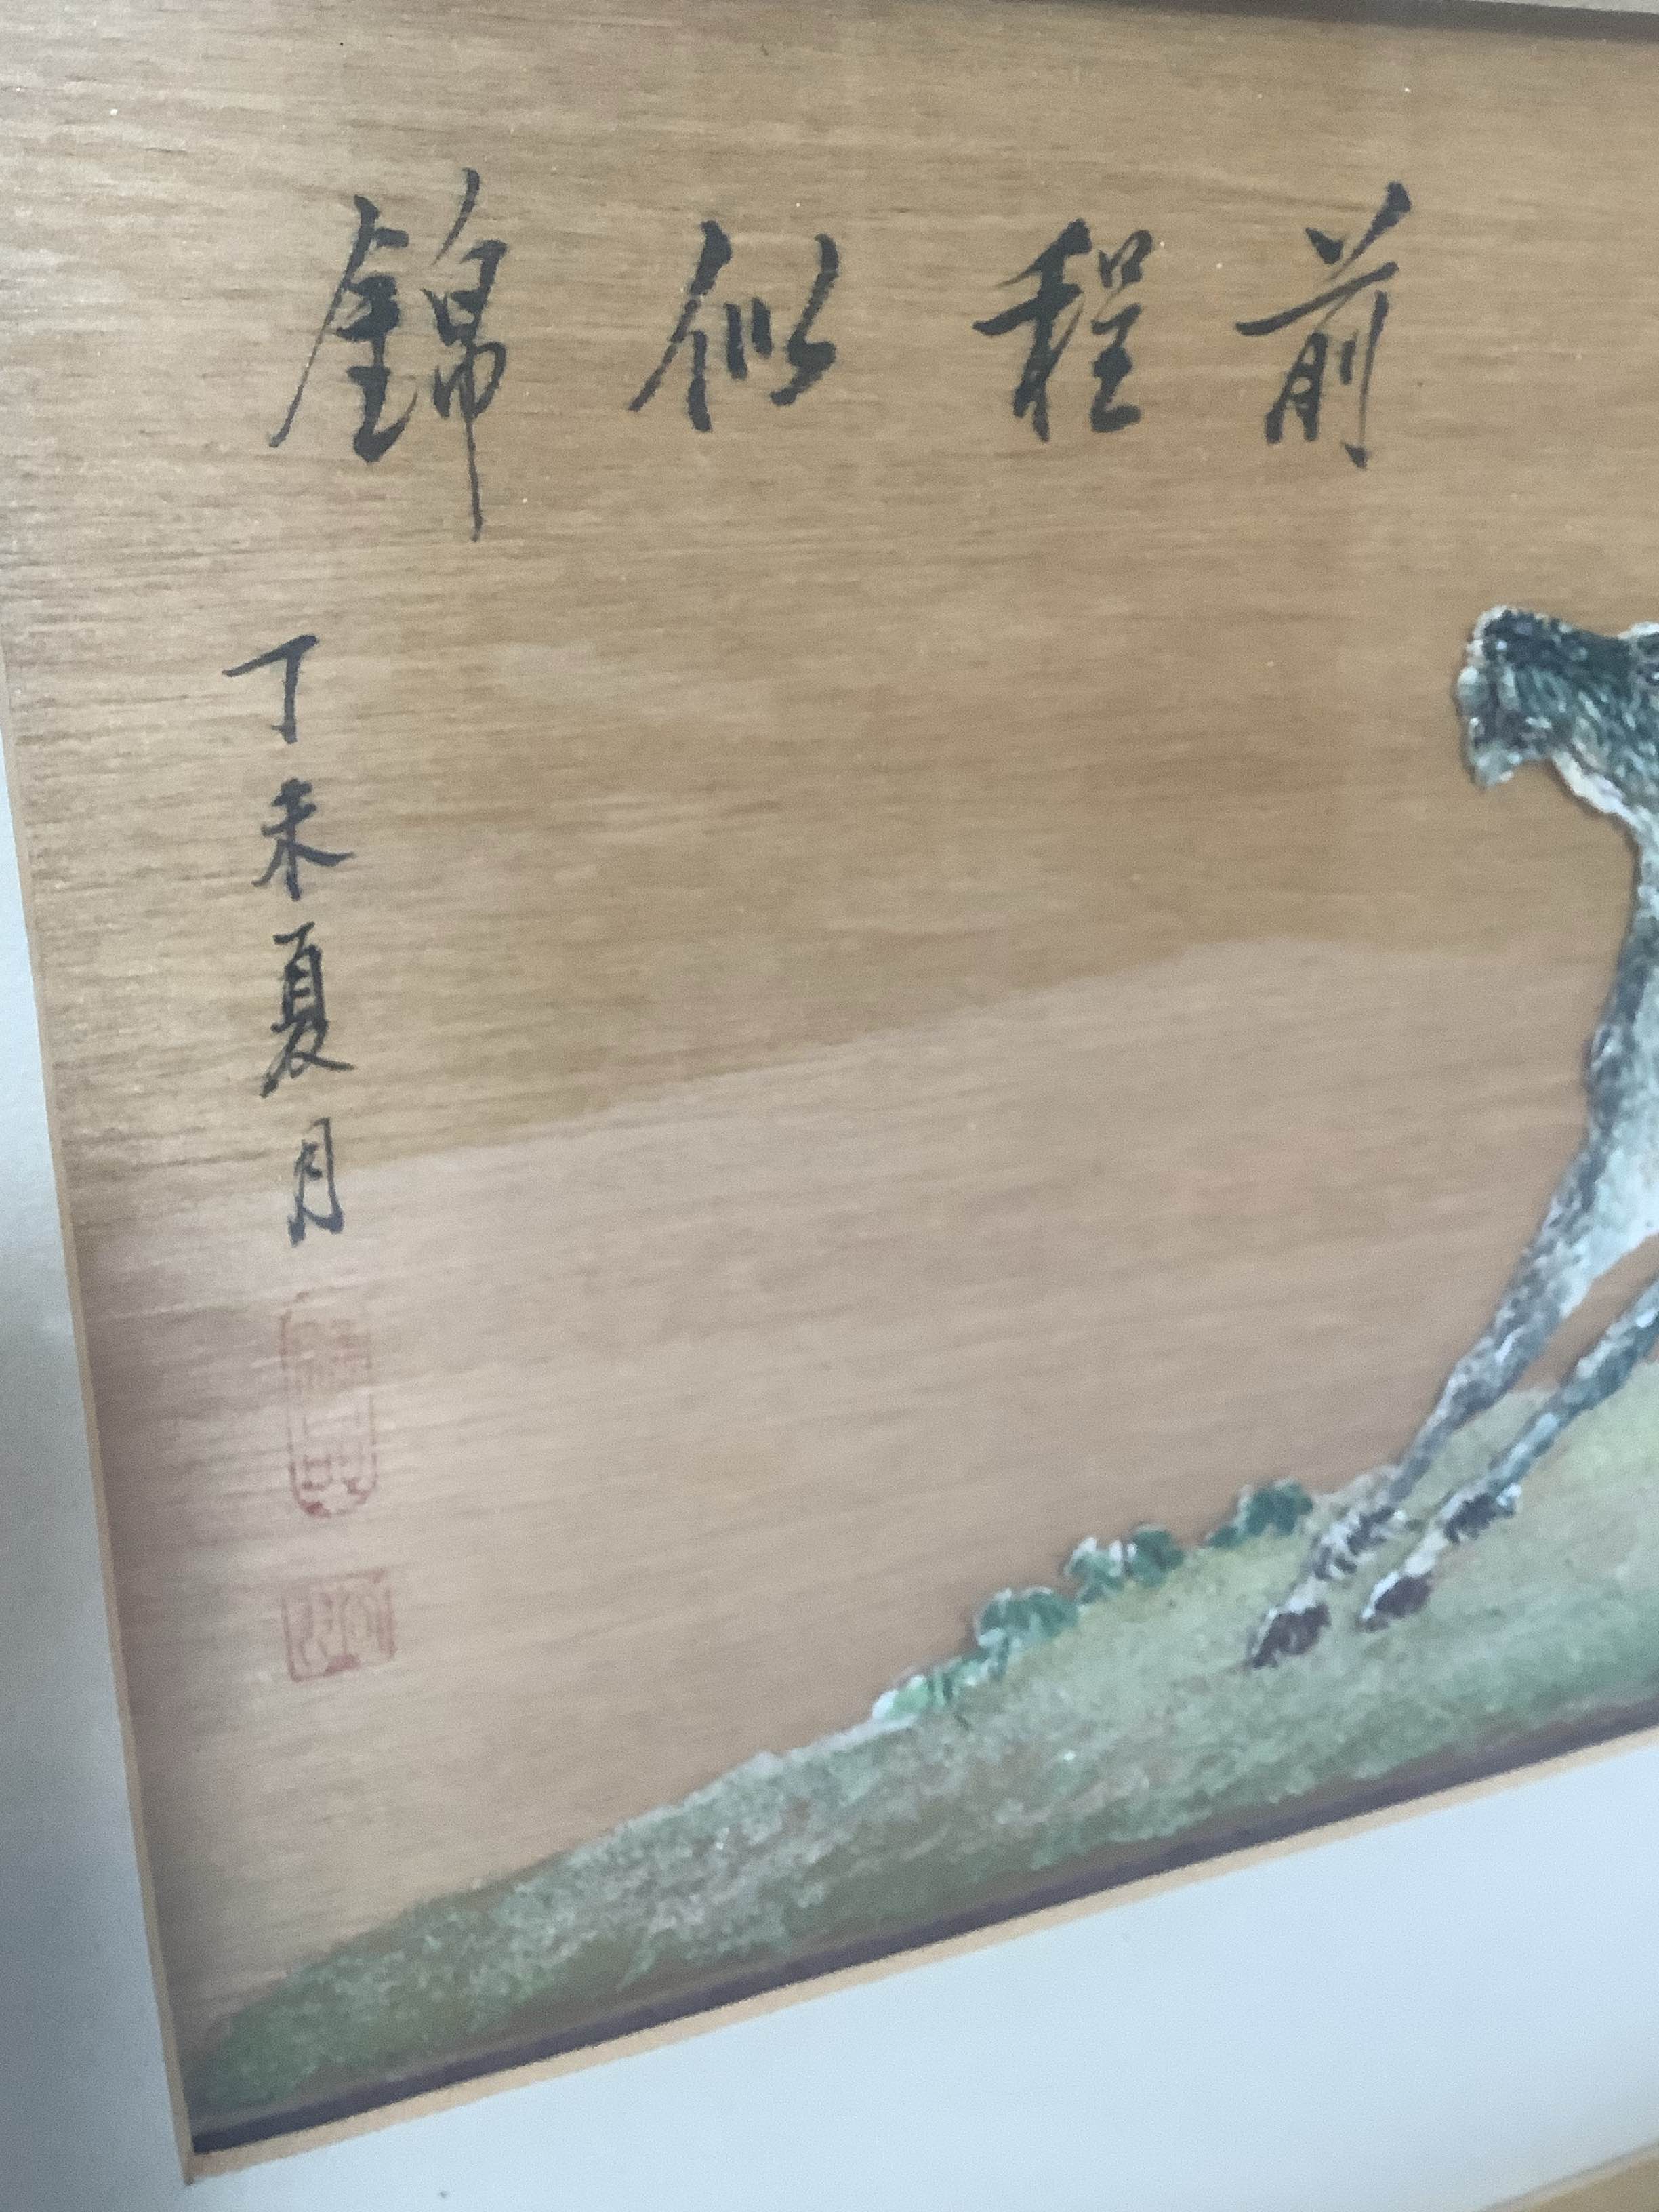 前程似錦
丁未夏月